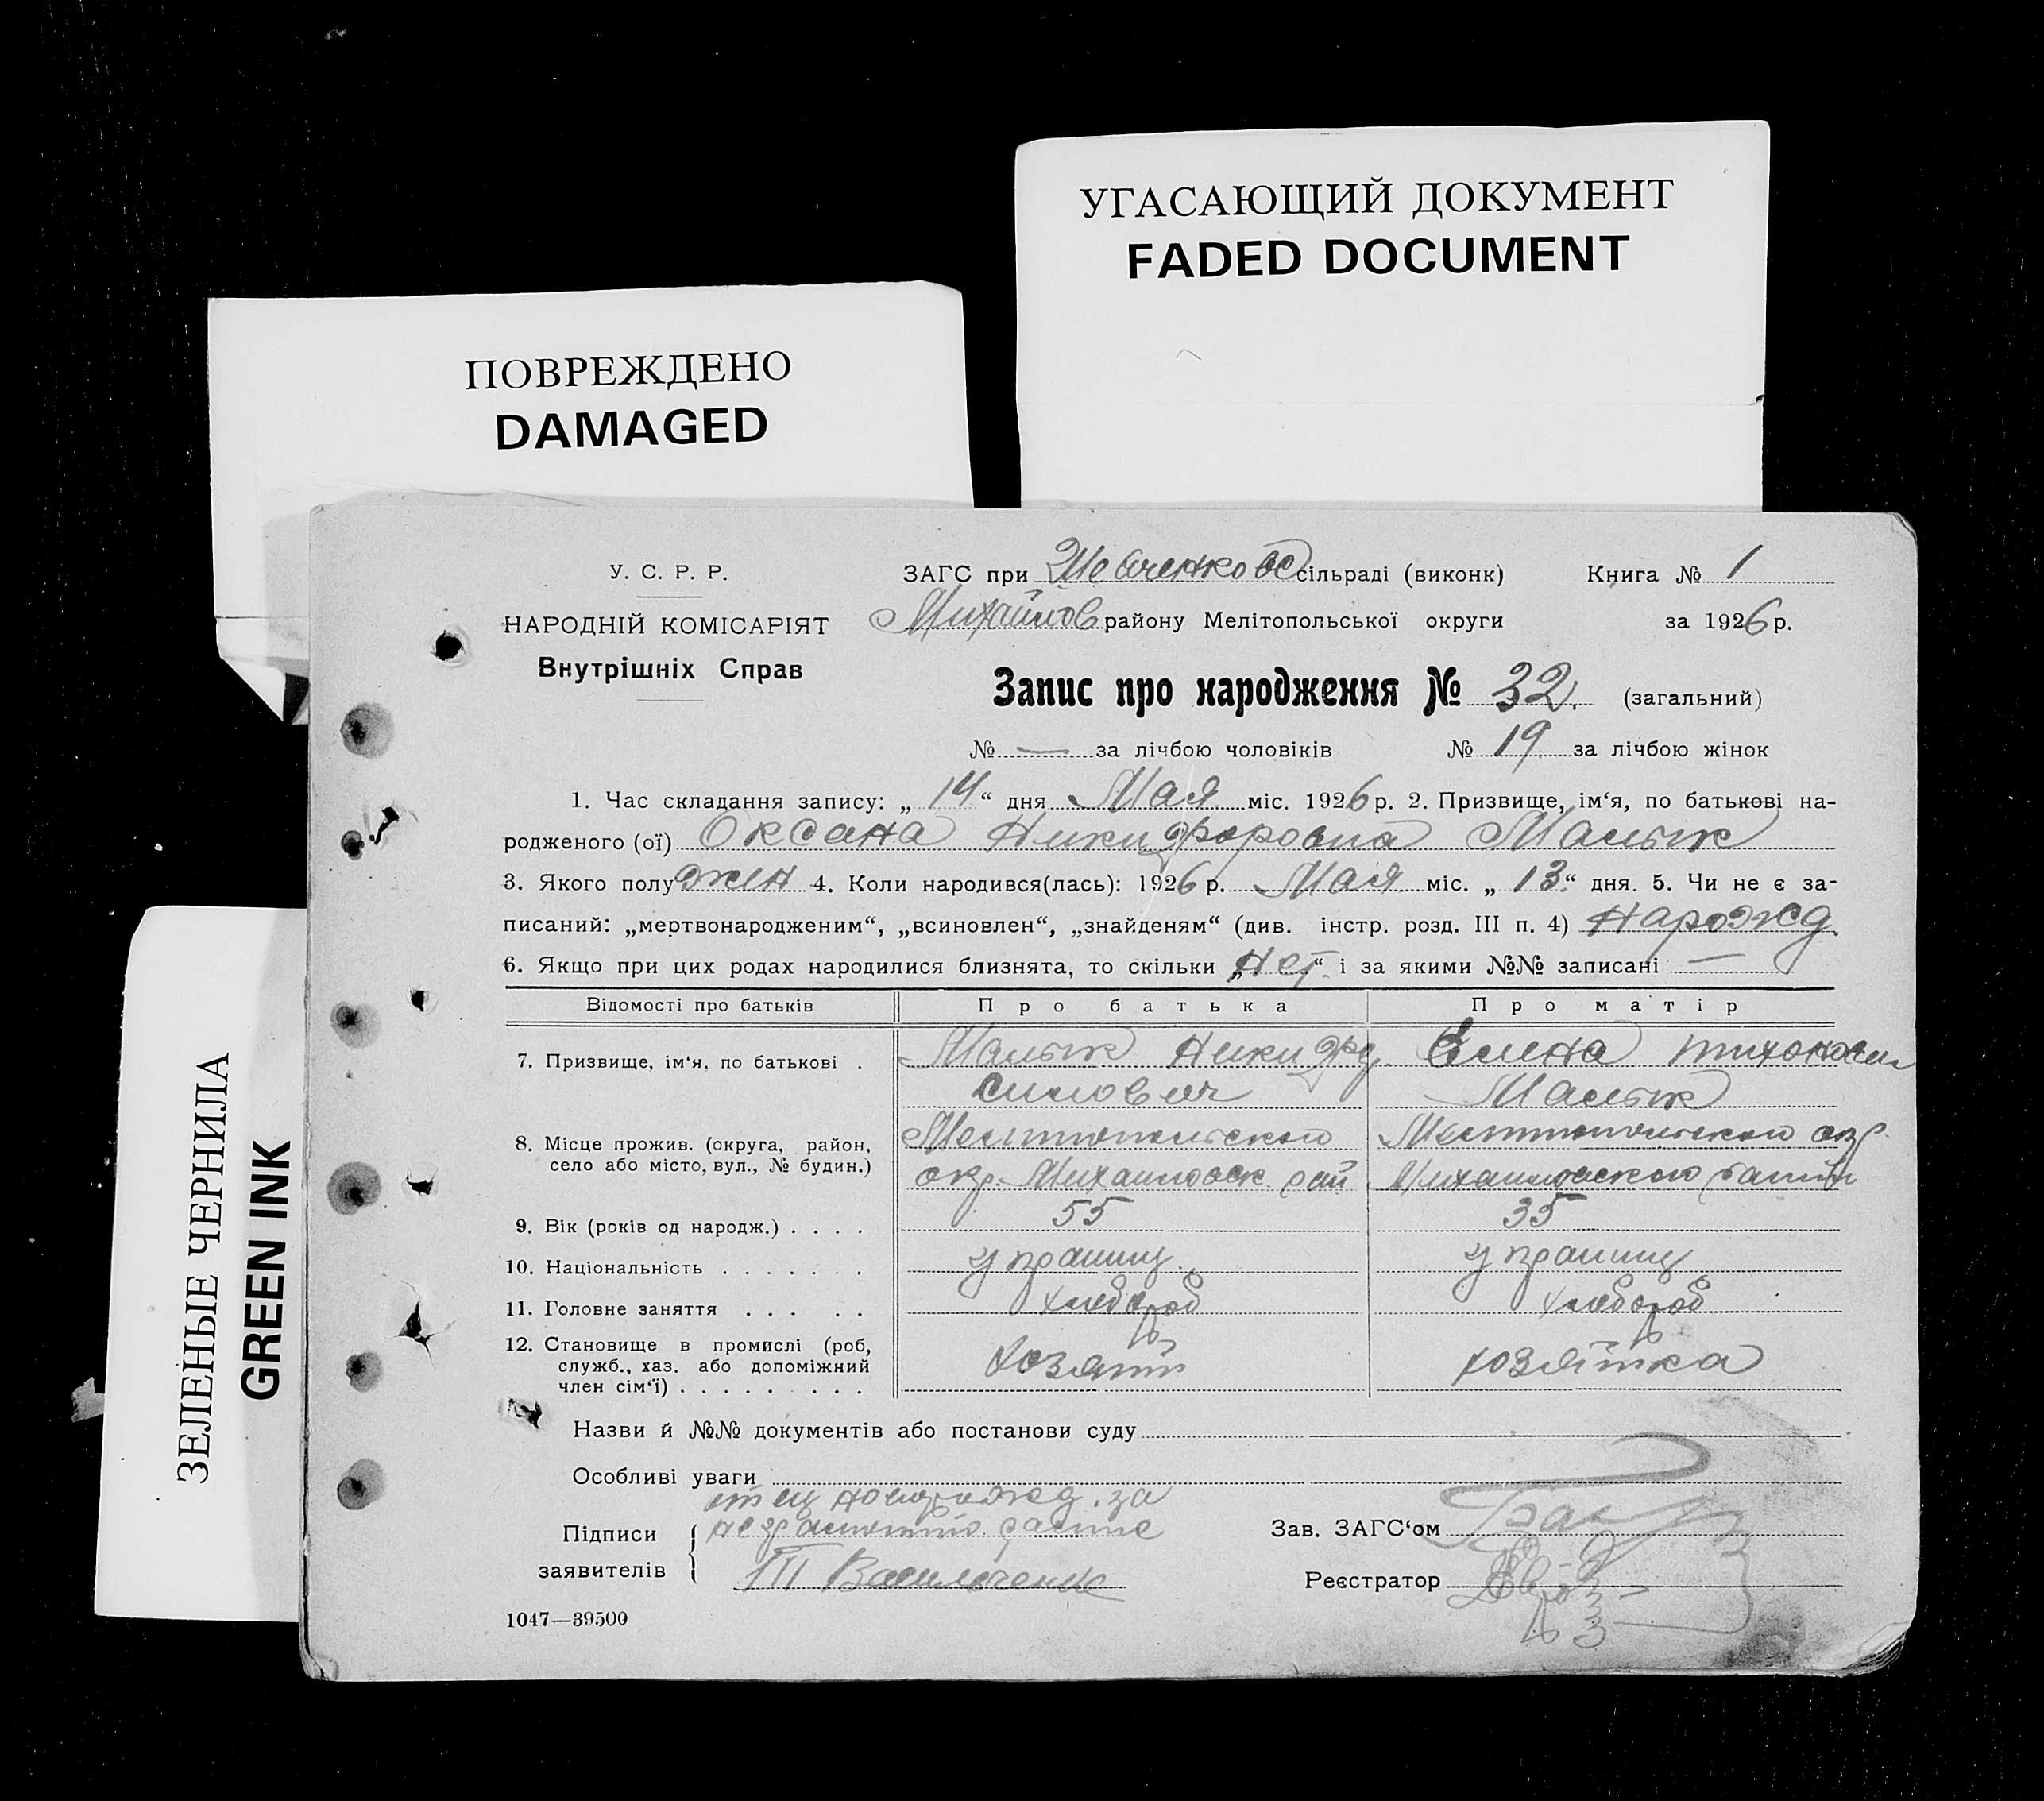 УГАСАЮЩИЙ ДОКУМЕНТ
FADED DOCUMENT
ПОВРЕЖДЕНО
DAMAGED
ЗЕЛЕНЫЕ ЧЕРНИЛА
GREEN INK
У. С. Р. Р.
НАРОДНІЙ КОМІСАРІЯТ
Внутрішніх Справ
ЗАГС при Шевченковс сільраді (виконк) Книга № 1
Михайлов району Мелітопольської округи за 1926 р.
Запис про народження № 32. (загальний)
№ — за лічбою чоловіків № 19 за лічбою жінок
1. Час складання запису: „ 14 “ дня Мая міс. 1926 р. 2. Призвище, ім‘я, по батькові на-
родженого (ої) Оксана Никифоровна Малык
3. Якого полу жен 4. Коли народився(лась): 1926 р. Мая міс. „ 13 “ дня. 5. Чи не є за-
писаний: „мертвонародженим“, „всиновлен“, „знайденям“ (див. інстр. розд. III п. 4) Нарожд.
6. Якщо при цих родах народилися близнята, то скільки „Нет“ і за якими №№ записані —
Відомості про батьків Про батька Про матір
7. Призвище, ім‘я, по батькові . Малык Никифр. Елена Тихоновн
Силович Малык
8. Місце прожив. (округа, район, Мелитопольской Мелитопольской окр.
село або місто, вул., № будин.) окр. Михайловск рай Михайловского район
9. Вік (років од народж.) . . . . 55 35
10. Національність . . . . . . . украинц украинц
11. Головне заняття . . . . . хлебороб хлебороб
12. Становище в промислі (роб,
служб., хаз. або допоміжний хозяин хозяйка
член сім‘ї) . . . . . . . . .
Назви й №№ документів або постанови суду
Особливі уваги
отец новорожд. за
Підписи
заявителів
III Васильченко
Зав. ЗАГС‘ом
Реєстратор
1047—39500